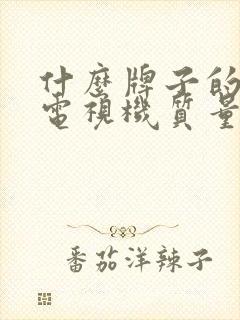 什麼牌子的
電視機質量
番茄洋辣子